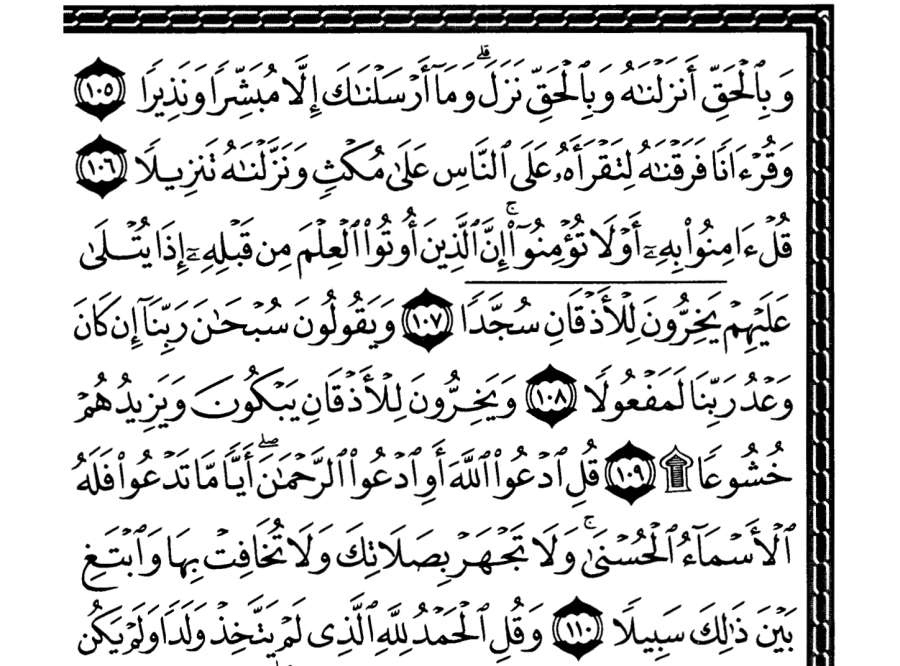 وَبِٱلْحَقِّ أَنزَلْنَٰهُ وَبِٱلْحَقِّ نَزَلَ ۗ وَمَآ أَرْسَلْنَٰكَ إِلَّا مُبَشِّرًا وَنَذِيرًا ١٠٥
وَقُرْءَانًا فَرَقْنَٰهُ لِتَقْرَأَهُۥ عَلَى ٱلنَّاسِ عَلَىٰ مُكْثٍ وَنَزَّلْنَٰهُ تَنزِيلًا ١٠٦
قُلْ ءَامِنُوا۟ بِهِۦٓ أَوْ لَا تُؤْمِنُوٓا۟ ۚ إِنَّ ٱلَّذِينَ أُوتُوا۟ ٱلْعِلْمَ مِن قَبْلِهِۦٓ إِذَا يُتْلَىٰ
عَلَيْهِمْ يَخِرُّونَ لِلْأَذْقَانِ سُجَّدًا ١٠٧ وَيَقُولُونَ سُبْحَٰنَ رَبِّنَآ إِن كَانَ
وَعْدُ رَبِّنَا لَمَفْعُولًا ١٠٨ وَيَخِرُّونَ لِلْأَذْقَانِ يَبْكُونَ وَيَزِيدُهُمْ
خُشُوعًا ۩ ١٠٩ قُلِ ٱدْعُوا۟ ٱللَّهَ أَوِ ٱدْعُوا۟ ٱلرَّحْمَٰنَ ۖ أَيًّا مَّا تَدْعُوا۟ فَلَهُ
ٱلْأَسْمَآءُ ٱلْحُسْنَىٰ ۚ وَلَا تَجْهَرْ بِصَلَاتِكَ وَلَا تُخَافِتْ بِهَا وَٱبْتَغِ
بَيْنَ ذَٰلِكَ سَبِيلًا ١١٠ وَقُلِ ٱلْحَمْدُ لِلَّهِ ٱلَّذِى لَمْ يَتَّخِذْ وَلَدًا وَلَمْ يَكُن